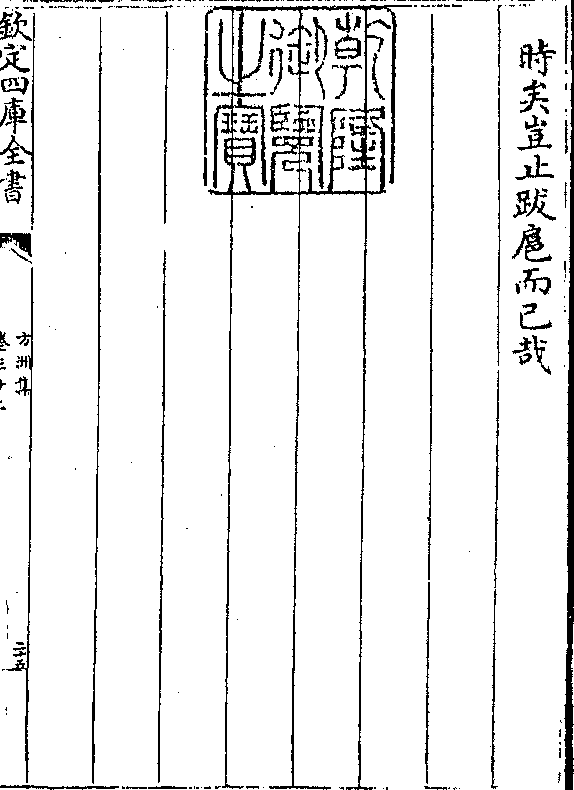 時矣豈止跋扈而已哉
乾隆
御覽
之寶
欽定四庫全書
方洲集
二十五